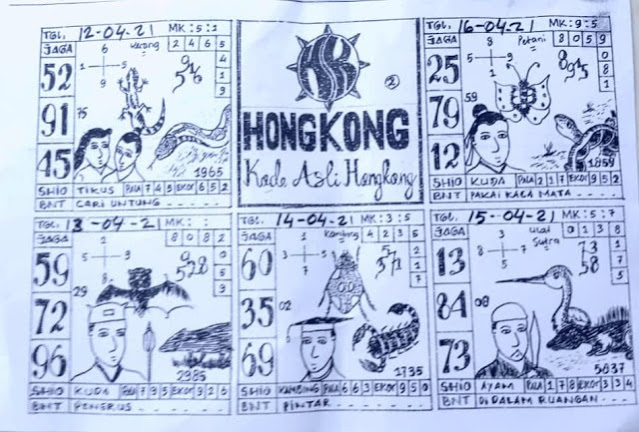 TGL. 12-04-21 MK: 5:1
JAGA 6 2 4 6 5
52 5 9 4
1 1
75 1
91 9
45 1965
SHIO TIKUS PALA 7 4 9 EKOR 6 5 2
BNT CARI UNTUNG - - - -
②
HONGKONG
Kode Asli Hongkong
TGL. 16-04-21 MK: 9:5
JAGA 8 Petani 8 0 5 9
25 5 9 0
1 8
59 1
79
12 1859
SHIO KUDA PALA 2 1 7 EKOR 9 5 2
BNT PAKAI KACA MATA - - - -
TGL. 13-04-21 MK: :
JAGA 2 8 0 8 2
59 5 9 0
8 5
29 9
72
96 2985
SHIO KUDA PALA 7 9 5 EKOR 9 2 6
BNT PENERUS - - - -
TGL. 14-04-21 MK: 3:5
JAGA 1 Kambing 4 2 3 5
60 3 5 371 2
7 1
02 7
35
69 1735
SHIO KAMBING PALA 6 6 3 EKOR 9 5 0
BNT PINTAR - - - -
TGL. 15-04-21 MK: 5:7
JAGA 3 Ulat Sutra 0 1 3 8
13 8 7 73 1
5 58 7
08 5
84
73 5837
SHIO AYAM PALA 1 7 8 EKOR 3 3 4
BNT DI DALAM RUANGAN - - - -